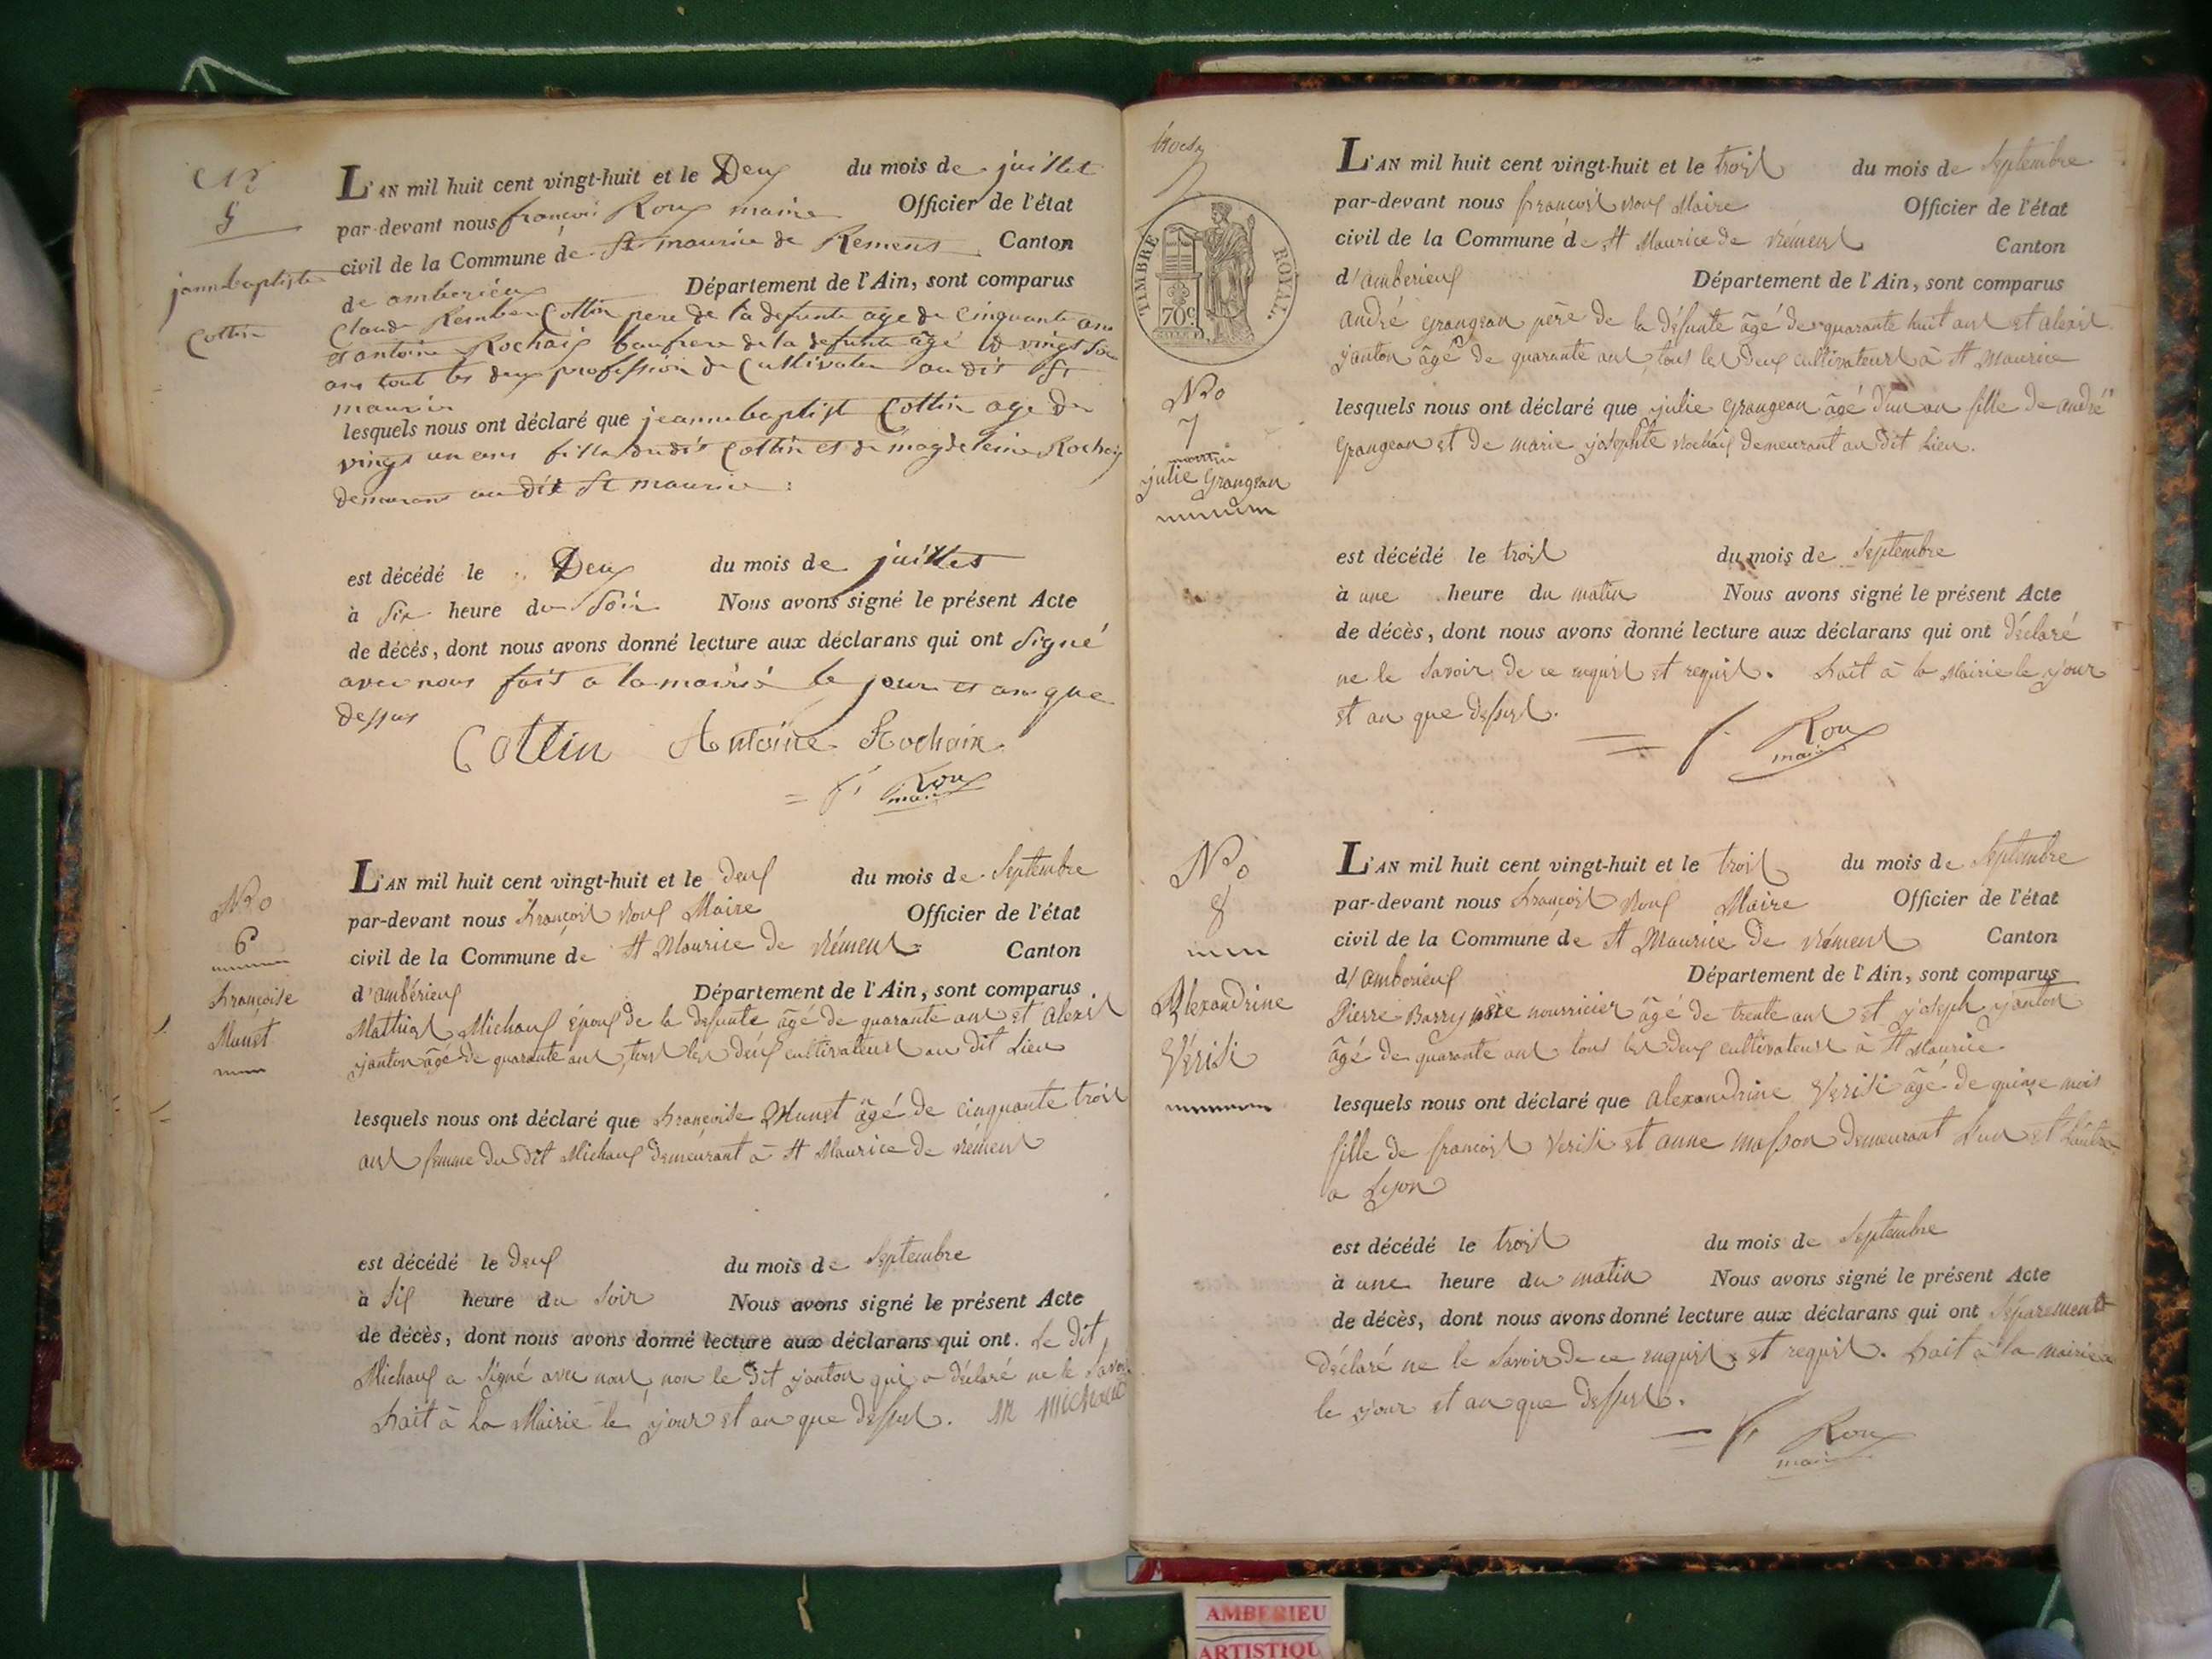 No
5
jannebaptiste
Cottin
L'AN mil huit cent vingt-huit et le Deux du mois de juillet
par-devant nous françois Roux maire Officier de l'état
civil de la Commune de St maurice de Remens Canton
de amberieux Département de l'Ain, sont comparus
Claude Rember Cottin pere de la defunte age de Cinquante ans
et antoine Rochaix beaufrere de la defunte âgé de vingt six
ans tout les deux profession de Cultivateur au dit St
maurice
lesquels nous ont déclaré que jeannebaptist Cottin age de
vingt un ans fille dudit Cottin et de magdeleine Rochaix
demurans au dit St maurice :
est décédé le Deux du mois de juillet
à six heure du soir Nous avons signé le présent Acte
de décès, dont nous avons donné lecture aux déclarans qui ont signé
avec nous fait a la mairie le jour et an que
dessus
Cottin Antoine Rochaix
= f. Roux
maire
No
6
françoise
Munet
L'AN mil huit cent vingt-huit et le deux du mois de Septembre
par-devant nous françois Roux Maire Officier de l'état
civil de la Commune de St Maurice de rémens Canton
d'ambérieux Département de l'Ain, sont comparus
Mathias Michaux époux de la defunte âgé de quarante ans et alexis
janton âgé de quarante ans, tous les deux cultivateurs au dit Lieu
lesquels nous ont déclaré que françoise Munet âgé de cinquante trois
ans femme du dit Michaux demeurant à St Maurice de rémens
est décédé le deux du mois de Septembre
à six heure du soir Nous avons signé le présent Acte
de décès, dont nous avons donné lecture aux déclarans qui ont. Le dit
Michaux a signé avec nous, non le dit janton qui a déclaré ne le savoir
fait à la Mairie le jour et an que dessus. M michaud
TIMBRE ROYAL.
70c
No
7
julie Grangean
L'AN mil huit cent vingt-huit et le trois du mois de Septembre
par-devant nous françois roux Maire Officier de l'état
civil de la Commune de St Maurice de rémens Canton
d'amberieux Département de l'Ain, sont comparus
andré grangean père de la défunte âgé de quarante huit ans et alexis
janton âgé de quarante ans, tous les deux cultivateurs à St Maurice
lesquels nous ont déclaré que julie grangean âgé d'un an fille de andré
grangean et de marie josephte rochaix demeurant au dit Lieu.
est décédé le trois du mois de Septembre
à une heure du matin Nous avons signé le présent Acte
de décès, dont nous avons donné lecture aux déclarans qui ont déclaré
ne le savoir de ce enquis et requis. fait à la Mairie le jour
et an que dessus.
= f. Roux
maire
No
8
Alexandrine
Vérisi
L'AN mil huit cent vingt-huit et le trois du mois de Septembre
par-devant nous françois Roux Maire Officier de l'état
civil de la Commune de St Maurice de rémens Canton
d'amberieux Département de l'Ain, sont comparus
Pierre Barry père nourricier âgé de trente ans et joseph janton
âgé de quarante ans tous les deux cultivateurs à St Maurice
lesquels nous ont déclaré que alexandrine Verisi âgé de quinze mois
fille de françois Verisi et anne masson demeurant l'un et l'autre
a Lyon
est décédé le trois du mois de Septembre
à une heure du matin Nous avons signé le présent Acte
de décès, dont nous avons donné lecture aux déclarans qui ont séparement
déclaré ne le savoir de ce enquis et requis. fait à la mairie
le jour et an que dessus.
= f. Roux
maire
AMBERIEU
ARTISTIQU